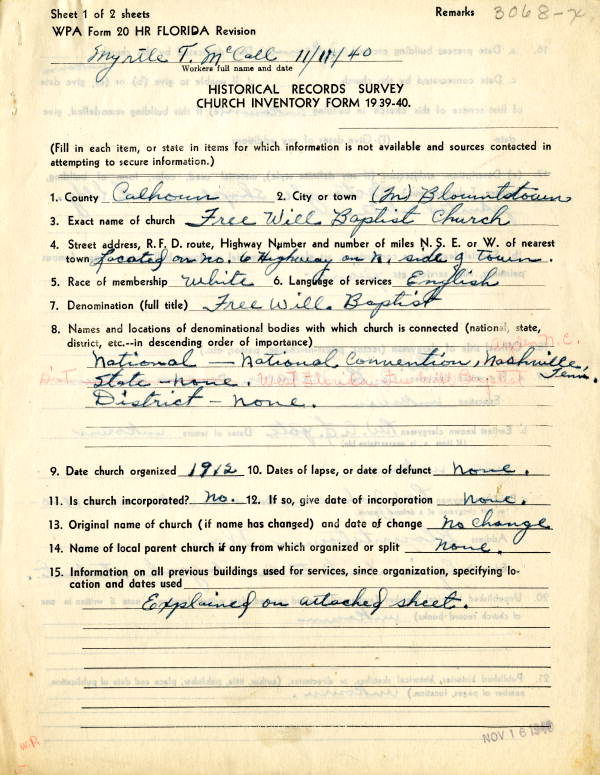 Sheet 1 of 2 sheets Remarks 3068-x
WPA Form 20 HR FLORIDA Revision
Myrtle T. McCall 11/11/40
Workers full name and date
HISTORICAL RECORDS SURVEY
CHURCH INVENTORY FORM 1939-40.
(Fill in each item, or state in items for which information is not available and sources contacted in
attempting to secure information.)
1. County Calhoun 2. City or town (In) Blountstown
3. Exact name of church Free Will Baptist Church
4. Street address, R. F. D. route, Highway Number and number of miles N. S. E. or W. of nearest
town Located on No. 6 Highway on N. side of town.
5. Race of membership White 6. Language of services English
7. Denomination (full title) Free Will Baptist
8. Names and locations of denominational bodies with which church is connected (national, state,
district, etc.--in descending order of importance)
National - National Convention, Nashville,
Tenn.
State - none.
District - none.
9. Date church organized 1912 10. Dates of lapse, or date of defunct None.
11. Is church incorporated? No. 12. If so, give date of incorporation None.
13. Original name of church (if name has changed) and date of change No change
14. Name of local parent church if any from which organized or split None.
15. Information on all previous buildings used for services, since organization, specifying lo-
cation and dates used
Explained on attached sheet.
NOV 16 1940
W.P.